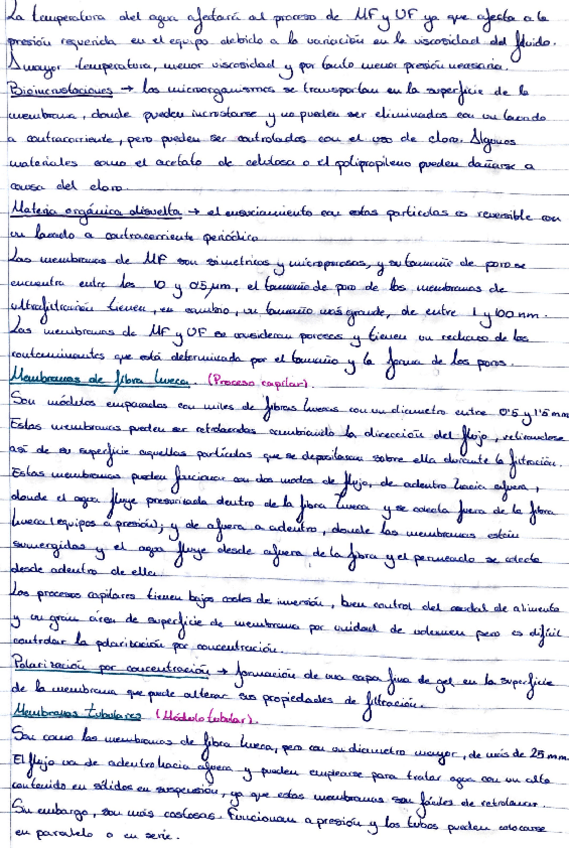 La temperatura del agua afectará al proceso de MF y UF ya que afecta a la
presión requerida en el equipo debido a la variación en la viscosidad del fluido.
A mayor temperatura, menor viscosidad y por tanto menor presión necesaria.
Bioincrustaciones → los microorganismos se transportan en la superficie de la
membrana, donde pueden incrustarse y no pueden ser eliminados con un lavado
a contracorriente, pero pueden ser controlados con el uso de cloro. Algunos
materiales como el acetato de celulosa o el polipropileno pueden dañarse a
causa del cloro.
Materia orgánica disuelta → el ensuciamiento con estas partículas es reversible con
un lavado a contracorriente periódico
Las membranas de MF son simetricas y microporosas, y su tamaño de poro se
encuentra entre los 10 y 0'5 μm, el tamaño de poro de las membranas de
ultrafiltración tienen, en cambio, un tamaño más grande, de entre 1 y 100 nm.
Las membranas de MF y UF se consideran porosas y tienen un rechazo de los
contaminantes que está determinado por el tamaño y la forma de los poros.
Membranas de fibra hueca. (Proceso capilar).
Son módulos empacados con miles de fibras huecas con un diametro entre 0'5 y 1'5 mm
Estas membranas pueden ser retrolavadas cambiando la dirección del flujo, retirandose
así de su superficie aquellas partículas que se depositaron sobre ella durante la filtración.
Estas membranas pueden funcionar con dos modos de flujo, de adentro hacia afuera,
donde el agua fluye presurizada dentro de la fibra hueca y se colecta fuera de la fibra
hueca (equipos a presión); y de afuera a adentro, donde las membranas están
sumergidas y el agua fluye desde afuera de la fibra y el permeado se colecta
desde adentro de ella.
Los procesos capilares tienen bajos costes de inversión, buen control del caudal de alimento
y un gran área de superficie de membrana por unidad de volumen pero es difícil
controlar la polarización por concentración.
Polarización por concentración → formación de una capa fina de gel en la superficie
de la membrana que puede alterar sus propiedades de filtración.
Membranas tubulares (Módulo tubular).
Son como las membranas de fibra hueca, pero con un diametro mayor, de más de 25 mm.
El flujo va de adentro hacia afuera y pueden emplearse para tratar agua con un alto
contenido en sólidos en suspensión, ya que estas membranas son fáciles de retrolavar.
Sin embargo, son más costosas. Funcionan a presión y los tubos pueden colocarse
en paralelo o en serie.